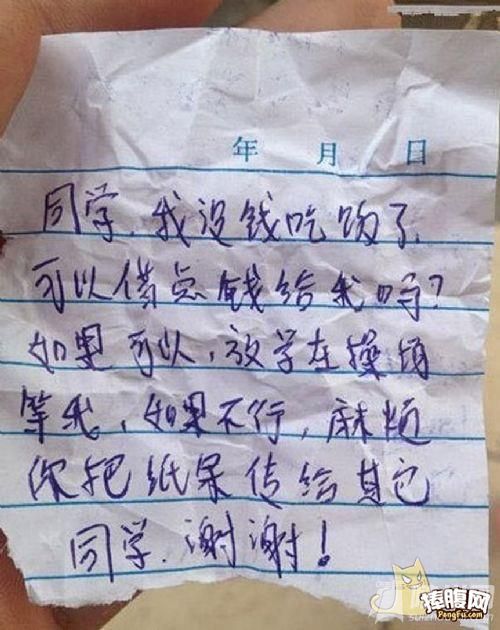 年 月 日
同学，我没钱吃饭了，
可以借点钱给我吗？
如果可以，放学在操场
等我，如果不行，麻烦
你把纸条传给其它
同学，谢谢！
捧腹网
PengFu.com